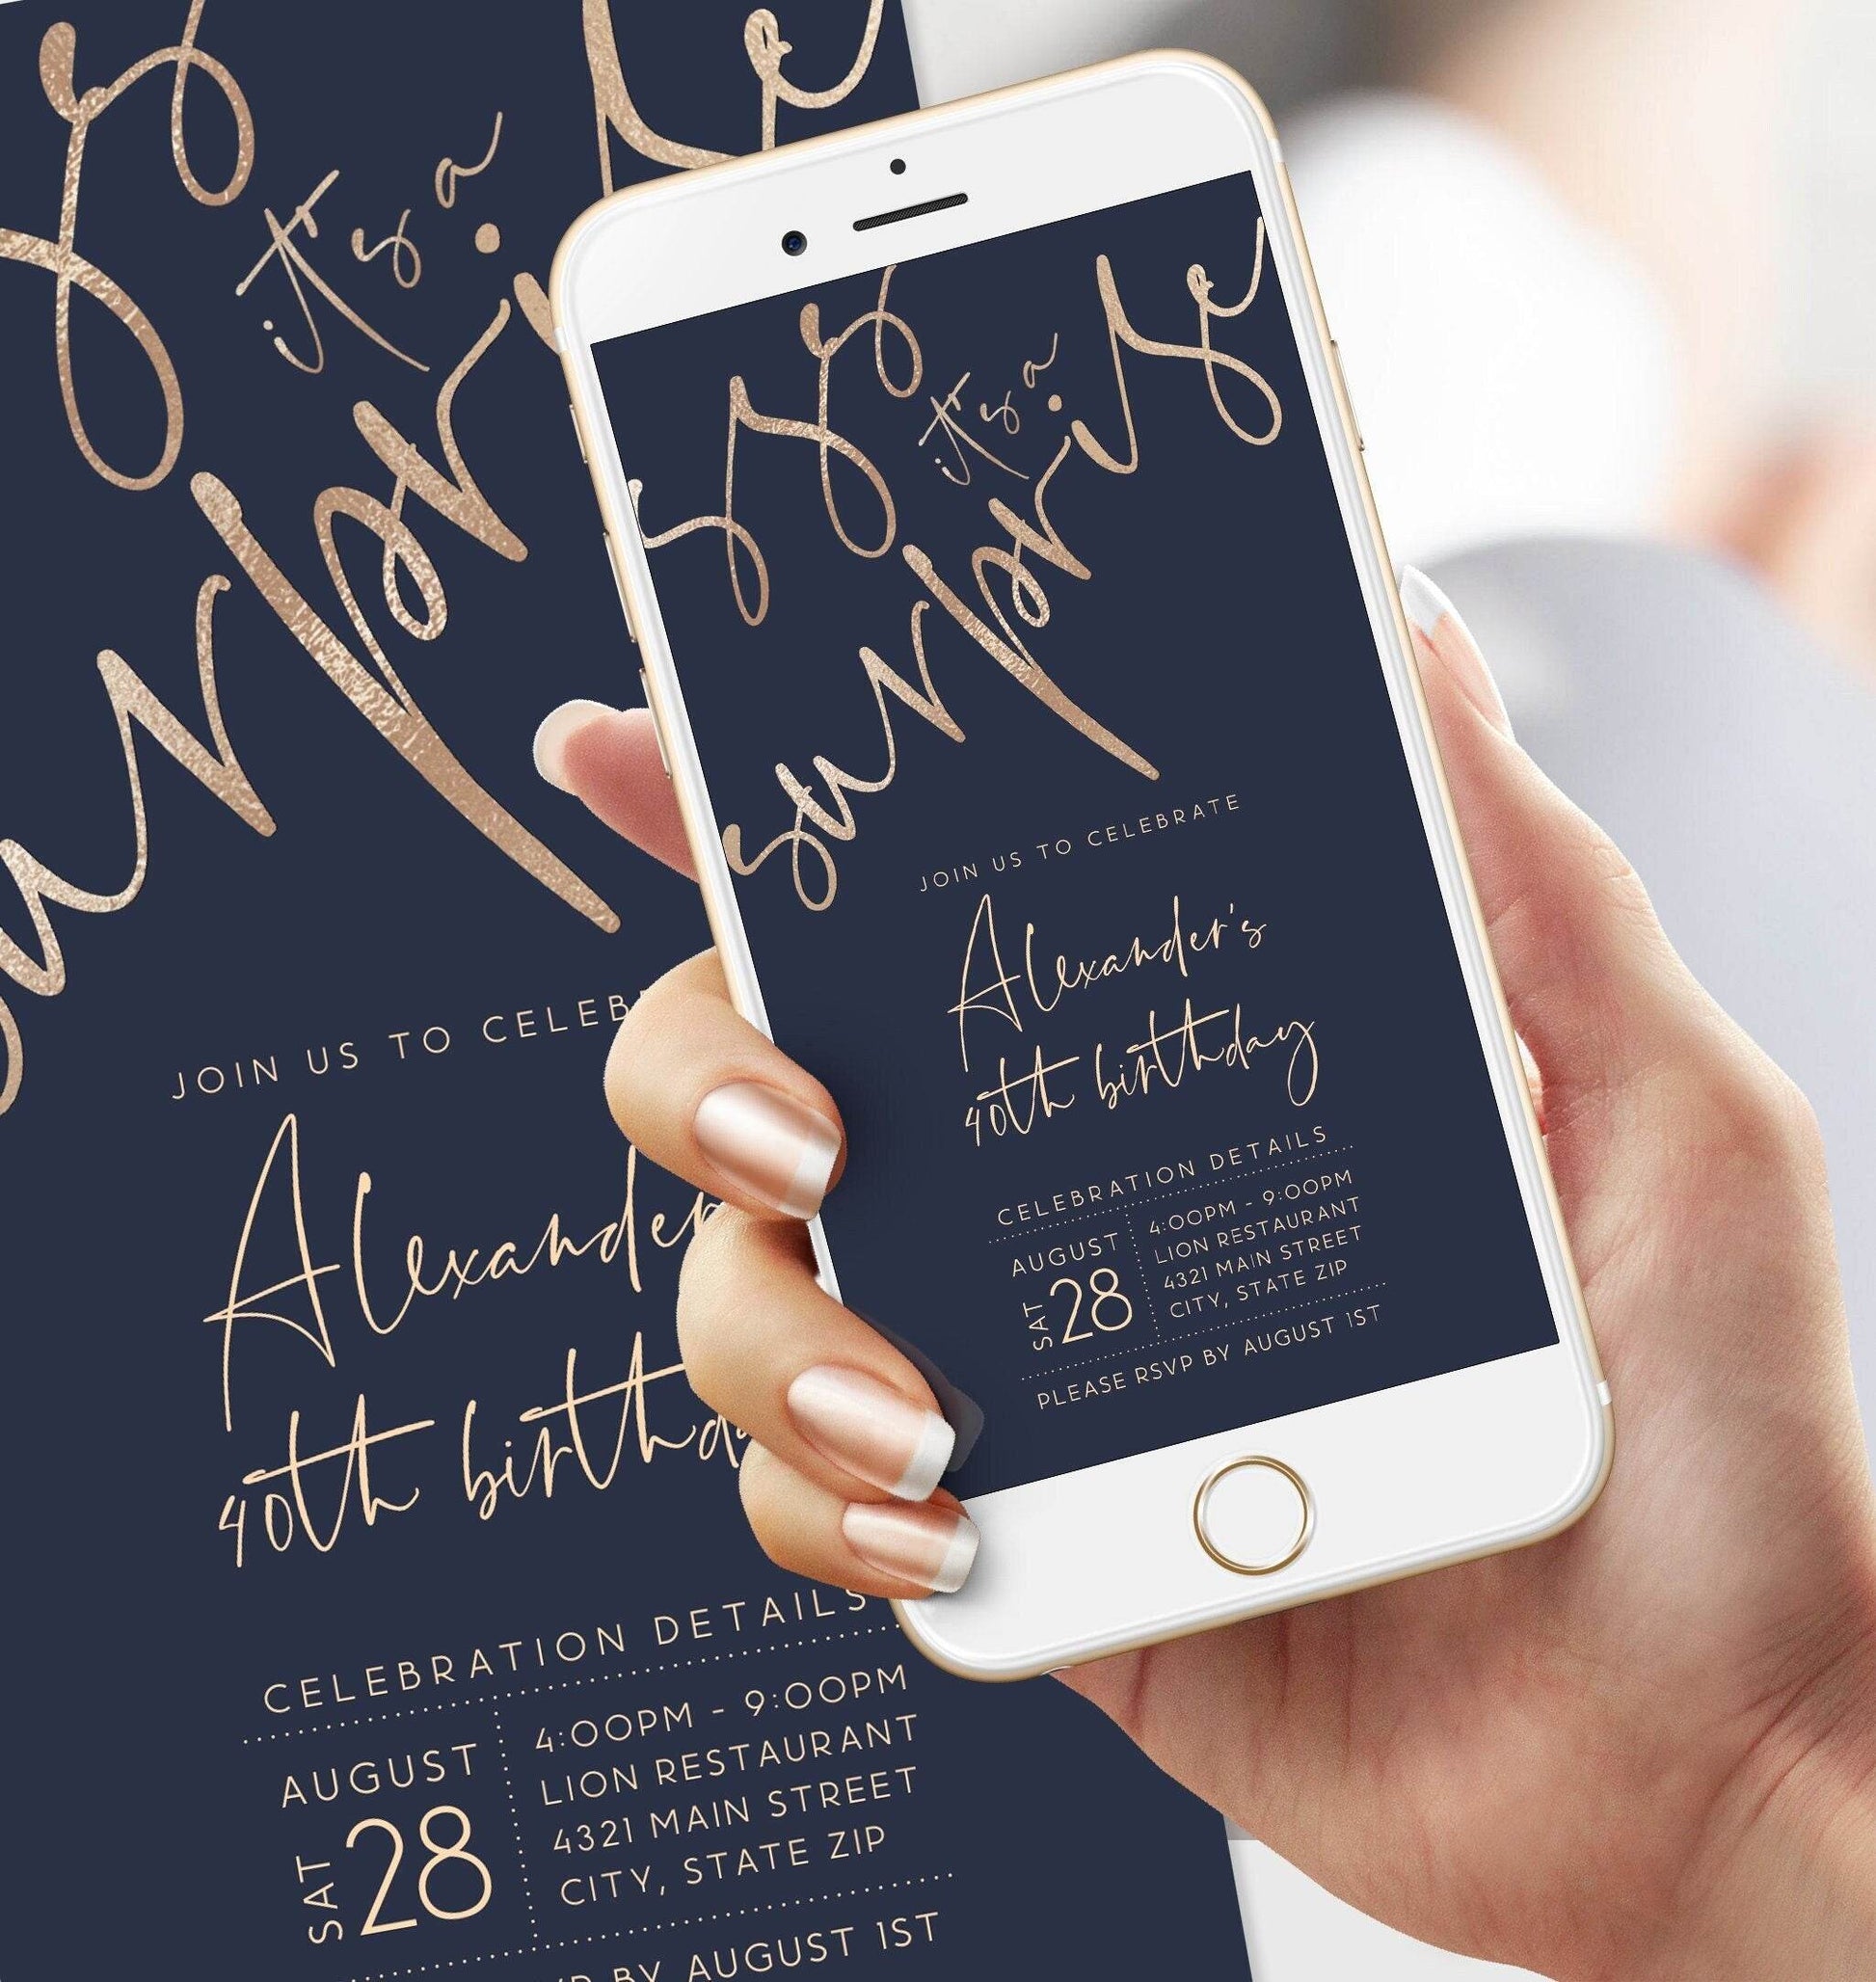 ss
it's a
surprise
JOIN US TO CELEB
Alexander
40th birthda
CELEBRATION DETAILS
AUGUST
SAT 28
4:00PM - 9:00PM
LION RESTAURANT
4321 MAIN STREET
CITY, STATE ZIP
BY AUGUST 1ST
sss
it's a
surprise
JOIN US TO CELEBRATE
Alexander's
40th birthday
CELEBRATION DETAILS
AUGUST
SAT 28
4:00PM - 9:00PM
LION RESTAURANT
4321 MAIN STREET
CITY, STATE ZIP
PLEASE RSVP BY AUGUST 1ST